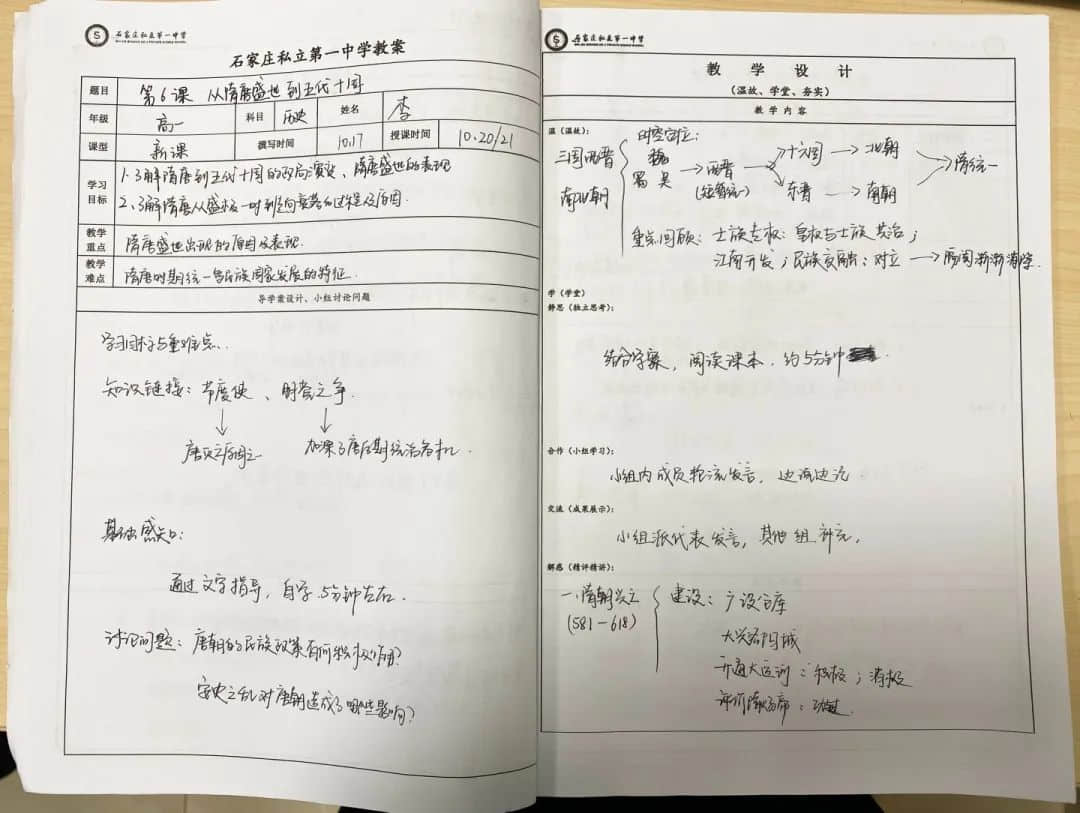 石家庄私立第一中学
石家庄私立第一中学教案
题目 第6课 从隋唐盛世到五代十国
年级 高一 科目 历史 姓名 李
课型 新课 撰写时间 10.17 授课时间 10.20/21
学习目标 1.了解隋唐到五代十国的政局演变、隋唐盛世的表现
2、了解隋唐从盛极一时到走向衰落的过程及原因.
教学重点 隋唐盛世出现的原因及表现.
教学难点 隋唐时期统一多民族国家发展的特征.
导学案设计、小组讨论问题
学习目标与重难点.
知识链接：节度使、朋党之争.
唐灭亡原因之一 加深了唐后期统治危机.
基础感知：
通过文字指导，自学5分钟左右.
讨论问题：唐朝的民族政策有何积极作用？
安史之乱对唐朝造成了哪些影响？
石家庄私立第一中学
教 学 设 计
（温故、学堂、夯实）
教 学 内 容
温（温故）：
三国两晋南北朝
时空定位：
魏 蜀 吴 → 西晋 (短暂统一) → 十六国 → 北朝 → 隋统一
东晋 → 南朝
重点回顾：士族专权：皇权与士族共治；
江南开发；民族交融：对立 →
学（学堂）
静思（独立思考）：
结合学案，阅读课本.约5分钟
合作（小组学习）：
小组内成员轮流发言，边说边论
交流（成果展示）：
小组派代表发言，其他组补充.
解惑（精评精讲）：
一、隋朝兴亡 (581－618)
建设：广设仓库
大兴 洛阳城
开通大运河：积极；消极
评价隋炀帝：